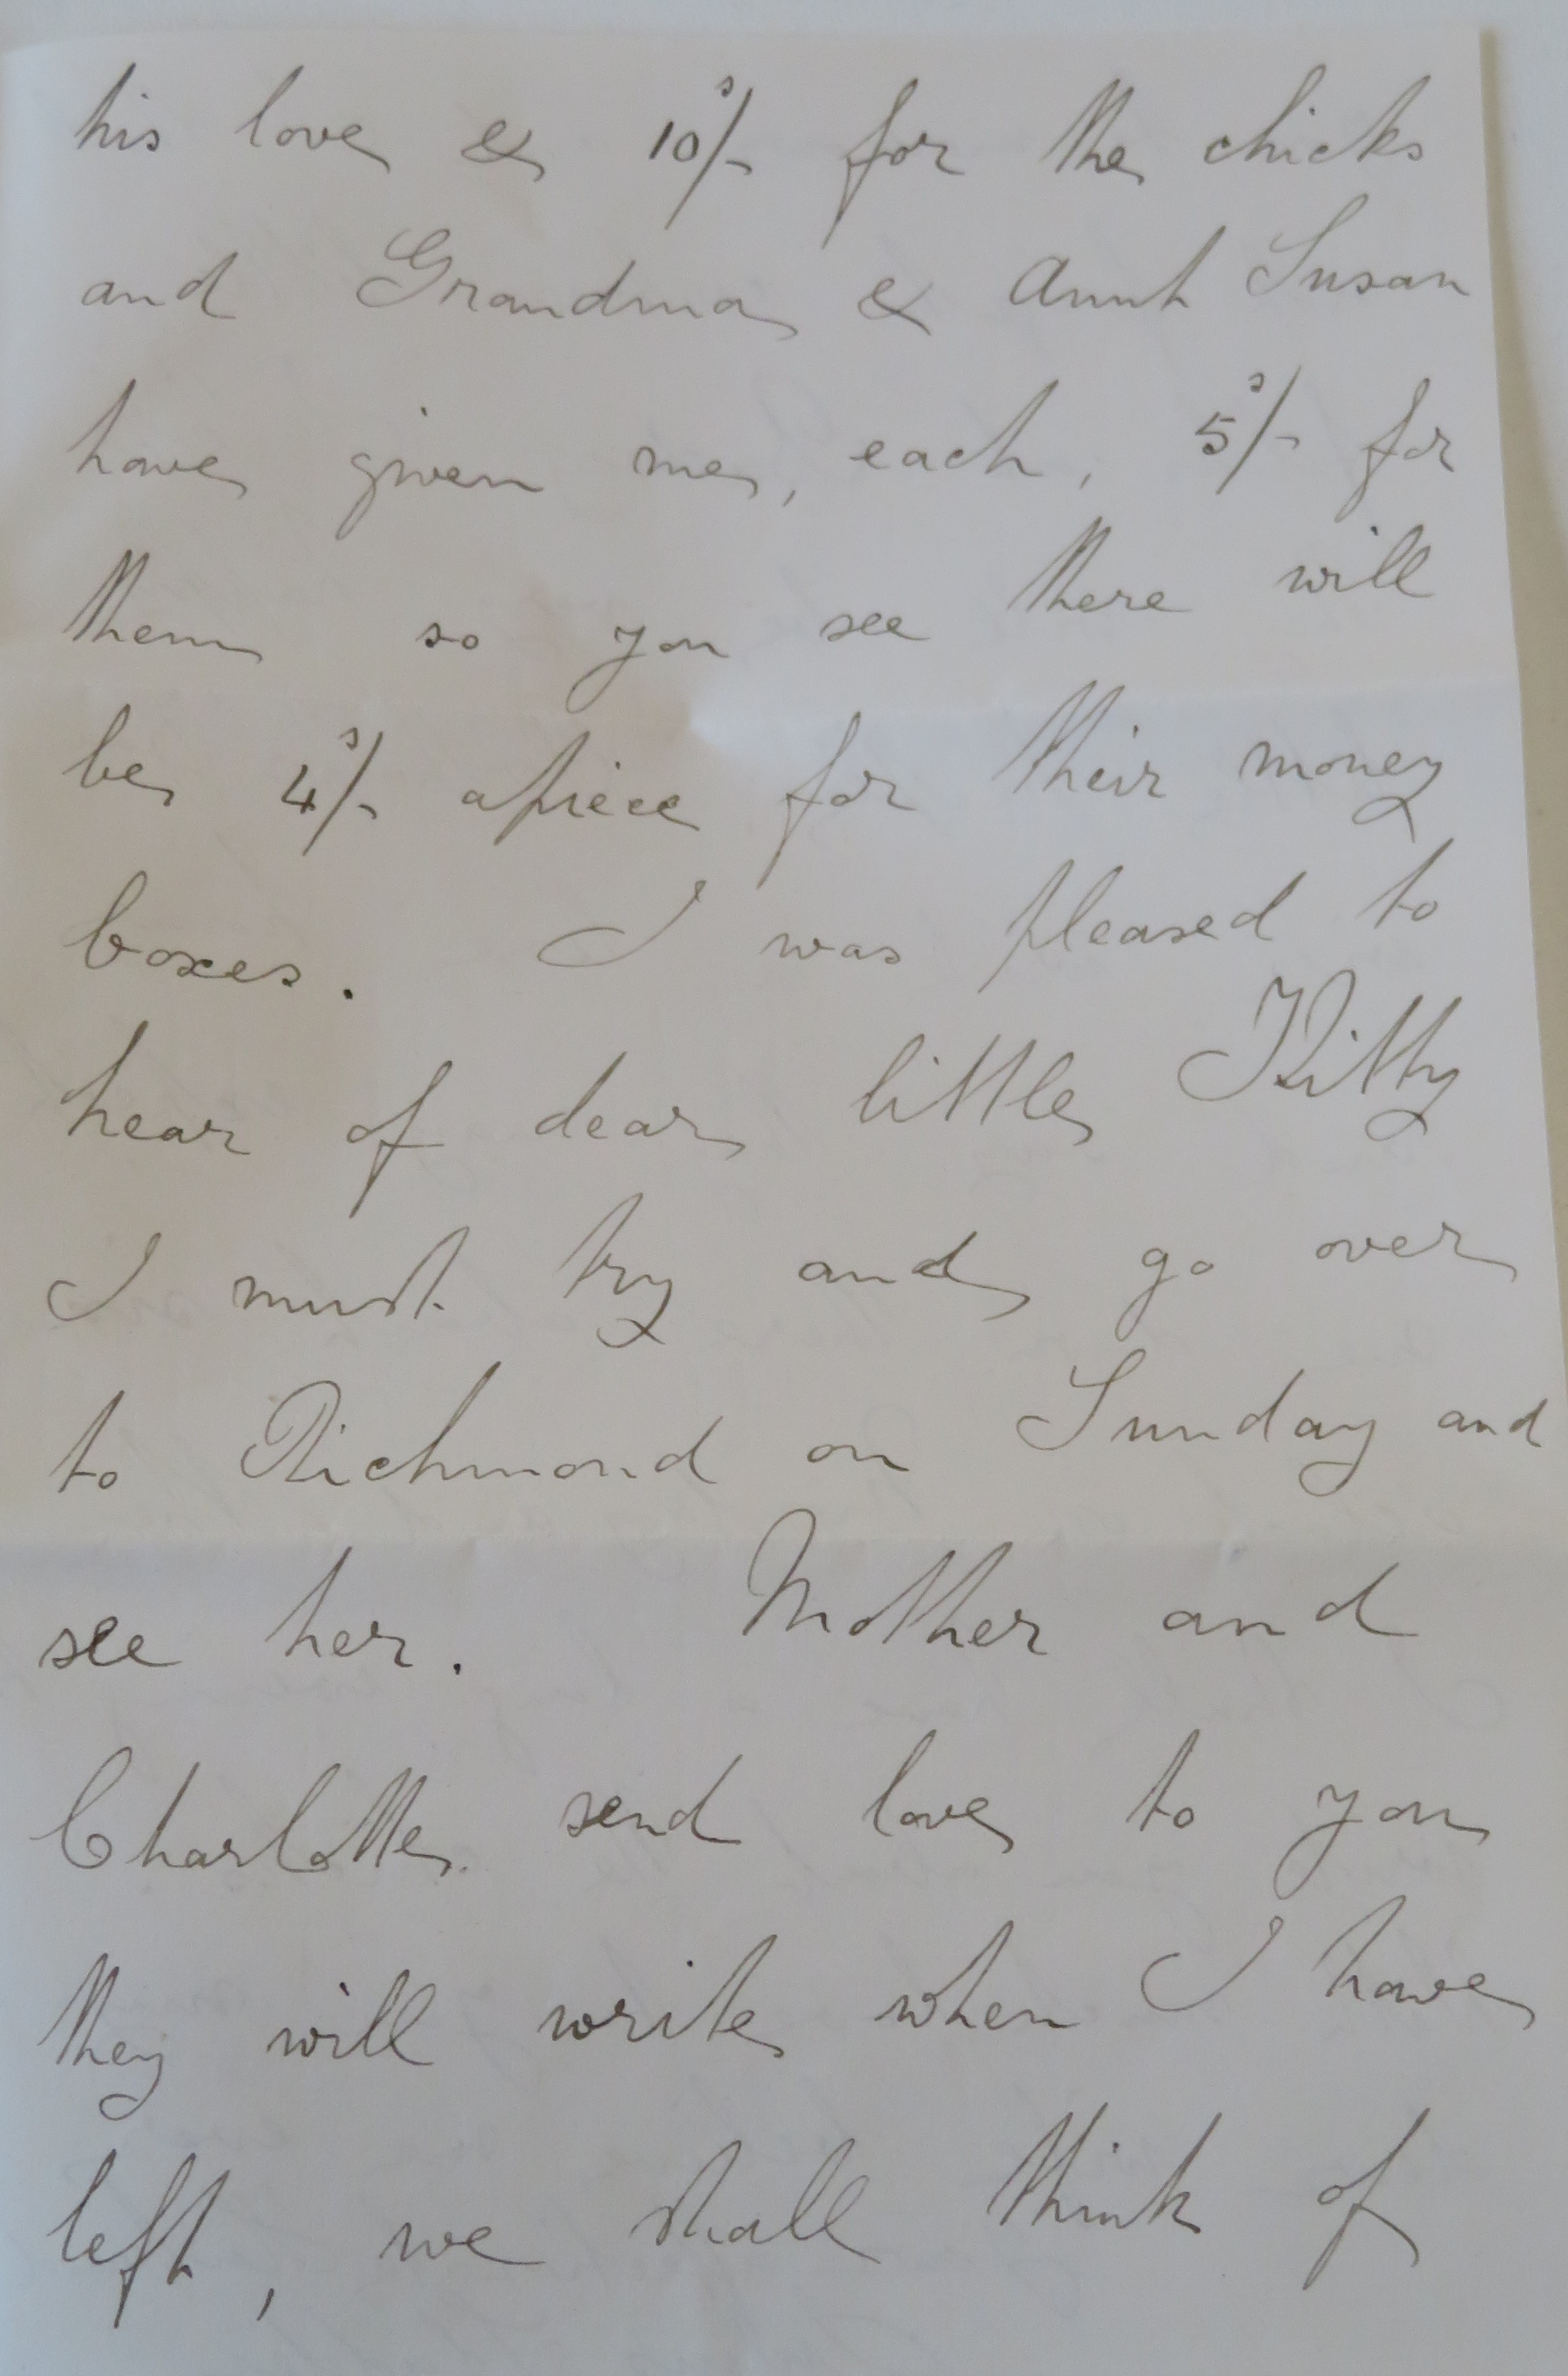 his love & 10s/- for the chicks
and Grandma & Aunt Susan
have given me, each, 5s/- for
them so you see there will
be 4s/- apiece for their money
boxes. I was pleased to
hear of dear little Kitty
I must try and go over
to Richmond on Sunday and
see her. Mother and
Charlotte send love to you
they will write when I have
left, we shall think of